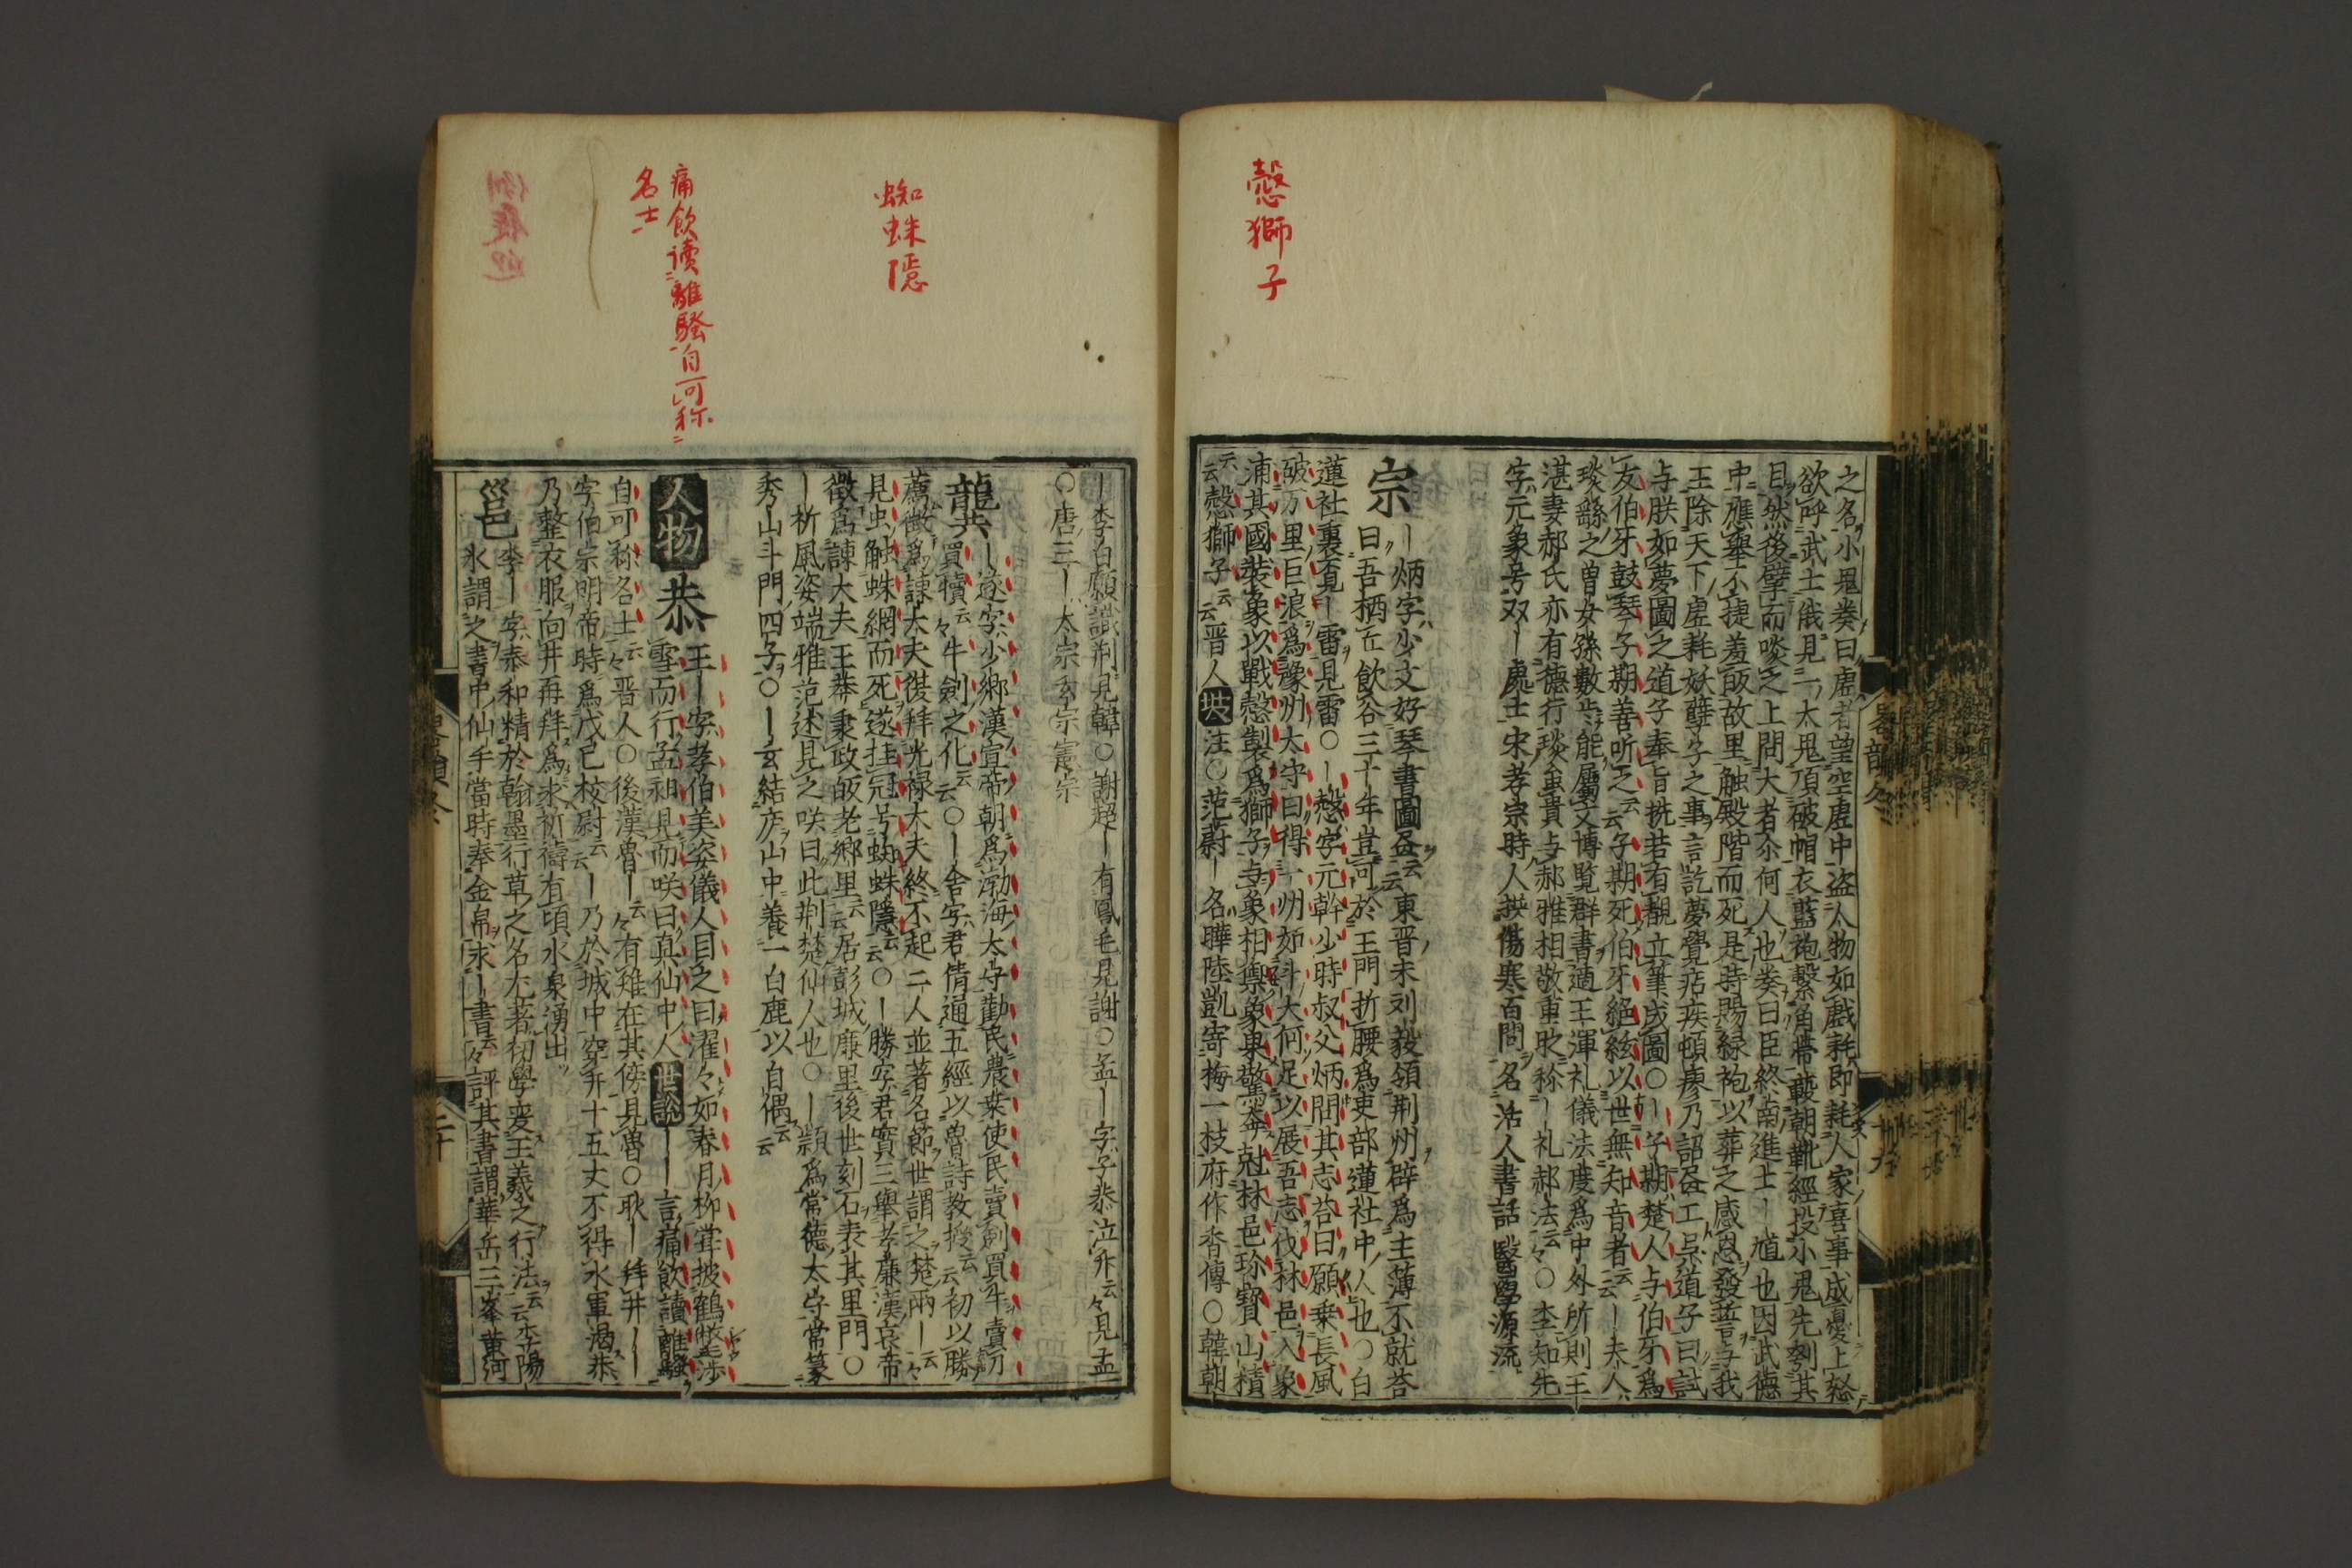 愨獅子
之名小鬼奏曰虛者望空虛中盜人物如戲耗即耗人家喜事成憂上怒
欲呼武士俄見一大鬼頂破帽衣藍袍繫角帶靸朝靴經投小鬼先刳其
目然後擘而啖之上問大者尒何人也奏曰臣終南進士ー馗也因武德
中應舉不捷羞皈故里触殿階而死是時賜緑袍以葬之感恩發誓与我
王除天下虛耗妖孽子之事言訖夢覺痁疾頓瘳乃詔畫工吳道子曰試
与朕如夢圖之道子奉旨恍若有覩立筆成圖○ー子期楚人与伯牙爲
友伯牙鼓琴子期善听之云云子期死伯牙絶絃以世無知音者云ー夫人
琰繇之曽女孫數歲能屬文博覧群書適王渾礼儀法度爲中外所則王
湛妻郝氏亦有德行琰虽貴与郝雅相敬重时称ー礼郝法云々○李知先
字元象号双ー處士宋孝宗時人撰傷寒百問名活人書話 醫學源流
宗 ー炳字少文好琴書圖畫云云東晋末刘毅領荆州辟爲主薄不就荅
曰吾栖丘飲谷三十年豈可於王門折腰爲吏部蓮社中人也○白
蓮社裏不見ー雷見雷○ー愨字元幹少時叔父炳問其志荅曰願乗長風
破万里巨浪爲豫州太守曰得一州如斗大何足以展吾志伐林邑入象
浦其國裝象以戰愨製爲獅子与象相輿象果驚奔尅林邑珎寳山積
云云愨獅子云云晋人 注○范蔚ー名曄陸凱寄梅一枝府作杏傳○韓朝
蜘蛛隠
痛飲读離騒自可称
名士
ー李白願識荆見韓○謝超ー有鳳毛見謝○孟ー字子恭泣笋云々見孟
○唐三ー太宗玄宗憲宗
龔 ー遂字少郷漢宣帝朝爲渤海太守勸民農桒使民賣劍買牛賣刀
買犢云々牛劍之化云云○ー舎字君倩通五經以魯詩教授云云初以勝
薦徴爲諫大夫後拜光禄大夫終不起二人並著名節世謂之楚兩ー云々
見虫触蛛網而死遂挂冠号蜘蛛隱云云○ー勝字君賓三舉孝廉漢哀帝
徴爲諫大夫王莽秉政皈老郷里云云居彭城廉里後世刻石表其里門○
ー祈風姿端雅范述見之咲曰此荆楚仙人也○ー頴爲常德太守常篆
秀山斗門四子○ー玄結庐山中養一白鹿以自偶云云
人物 恭 王ー字孝伯美姿儀人目之曰濯々如春月柳甞披鶴氅涉
雪而行孟昶見而咲曰真仙中人 世說 ーー言痛飲讀離騷
自可称名士云々晋人○後漢魯ー云々有雉在其傍見魯○耿ー拜井ーー
字伯宗明帝時爲戊己校尉云云ー乃於城中穿井十五丈不得水軍渴恭
乃整衣服向井再拜爲求祈禱有頃水泉湧出
邕 李ー字泰和精於翰墨行草之名尤著初學変王羲之行法云云李陽
氷謂之書中仙手當時奉金帛求ー書云々評其書謂華岳三峯黄河